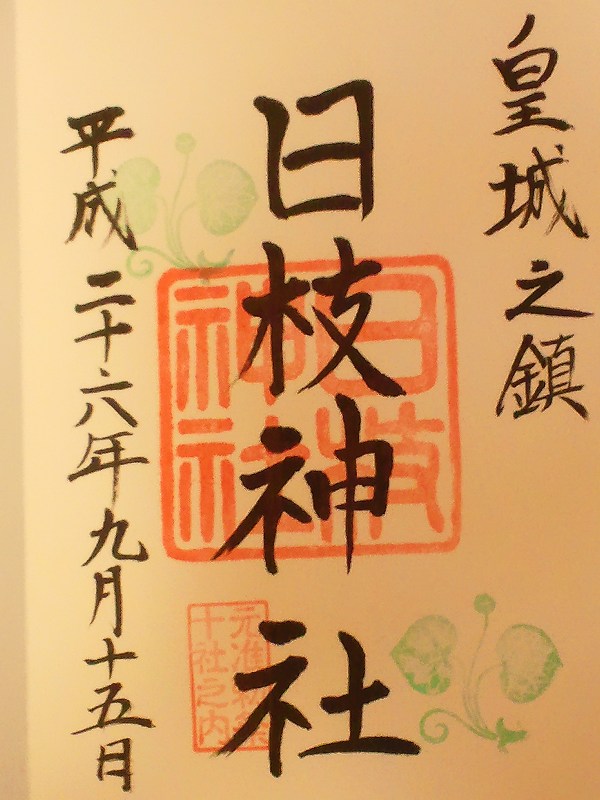 皇城之鎮
日枝神社
日枝
神社
元准勅祭
十社之内
平成二十六年九月十五日